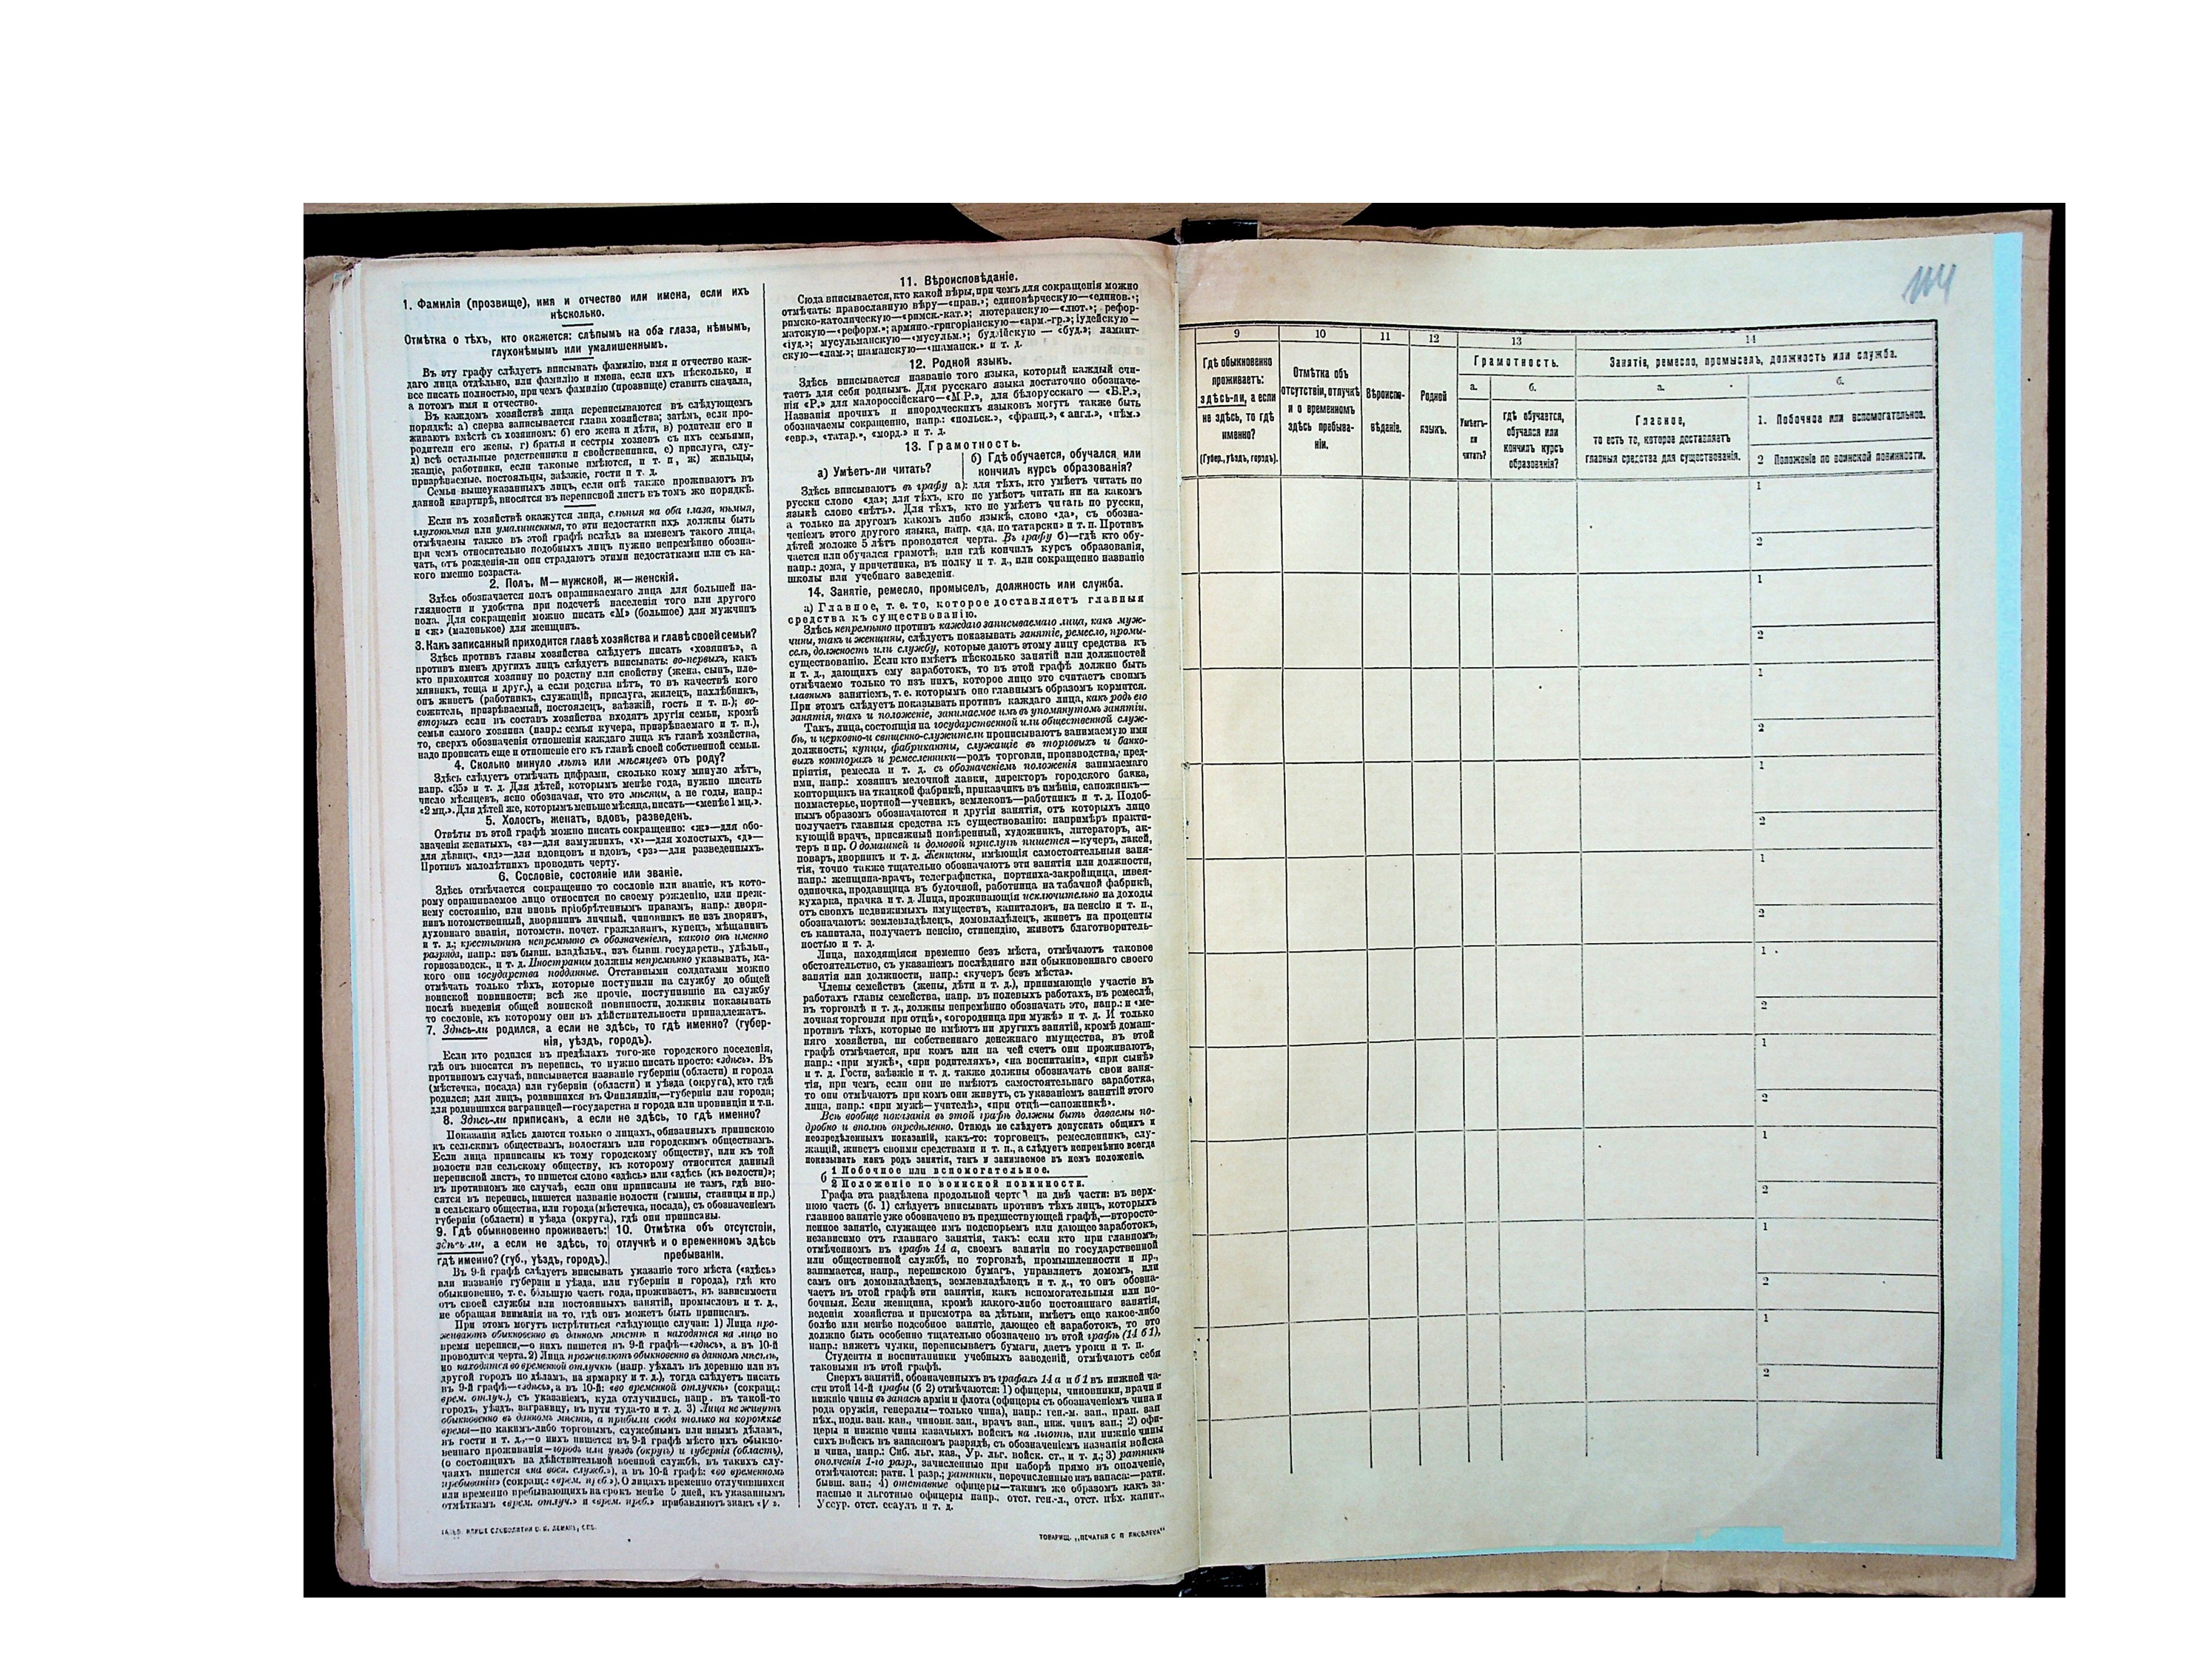 1. Фамилія (прозвище), имя и отчество или имена, если ихъ
нѣсколько.
Отмѣтка о тѣхъ, кто окажется: слѣпымъ на оба глаза, нѣмымъ,
глухонѣмымъ или умалишеннымъ.
Въ эту графу слѣдуетъ вписывать фамилію, имя и отчество каж-
даго лица отдѣльно, или фамилію и имена, если ихъ нѣсколько, и
все писать полностью, при чемъ фамилію (прозвище) ставить сначала,
а потомъ имя и отчество.
Въ каждомъ хозяйствѣ лица переписываются въ слѣдующемъ
порядкѣ: а) сперва записывается глава хозяйства; затѣмъ, если про-
живаютъ вмѣстѣ съ хозяиномъ: б) его жена и дѣти, в) родители его и
родители его жены, г) братья и сестры хозяевъ съ ихъ семьями,
д) всѣ остальные родственники и свойственники, е) прислуга, слу-
жащіе, работники, если таковые имѣются, и т. п., ж) жильцы,
призрѣваемые, постояльцы, заѣзжіе, гости и т. д.
Семьи вышеуказанныхъ лицъ, если онѣ также проживаютъ въ
данной квартирѣ, вносятся въ переписной листъ въ томъ же порядкѣ.
Если въ хозяйствѣ окажутся лица, слѣпыя на оба глаза, нѣмыя,
глухонѣмыя или умалишенныя, то эти недостатки ихъ должны быть
отмѣчаемы также въ этой графѣ вслѣдъ за именемъ такого лица,
при чемъ относительно подобныхъ лицъ нужно непремѣнно обозна-
чать, отъ рожденія-ли они страдаютъ этими недостатками или съ ка-
кого именно возраста.
2. Полъ, М—мужской, ж—женскій.
Здѣсь обозначается полъ опрашиваемаго лица для большей на-
глядности и удобства при подсчетѣ населенія того или другого
пола. Для сокращенія можно писать «М» (большое) для мужчинъ
и «ж» (маленькое) для женщинъ.
3. Какъ записанный приходится главѣ хозяйства и главѣ своей семьи?
Здѣсь противъ главы хозяйства слѣдуетъ писать «хозяинъ», а
противъ именъ другихъ лицъ слѣдуетъ вписывать: во-первыхъ, какъ
кто приходится хозяину по родству или свойству (жена, сынъ, пле-
мянникъ, теща и друг.), а если родства нѣтъ, то въ качествѣ кого
онъ живетъ (работникъ, служащій, прислуга, жилецъ, нахлѣбникъ,
сожитель, призрѣваемый, постоялецъ, заѣзжій, гость и т. п.); во-
вторыхъ если въ составъ хозяйства входятъ другія семьи, кромѣ
семьи самого хозяина (напр.: семья кучера, призрѣваемаго и т. п.),
то, сверхъ обозначенія отношенія каждаго лица къ главѣ хозяйства,
надо прописать еще и отношеніе его къ главѣ своей собственной семьи.
4. Сколько минуло лѣтъ или мѣсяцевъ отъ роду?
Здѣсь слѣдуетъ отмѣчать цифрами, сколько кому минуло лѣтъ,
напр. «35» и т. д. Для дѣтей, которымъ менѣе года, нужно писать
число мѣсяцевъ, ясно обозначая, что это мѣсяцы, а не годы, напр.:
«2 мц.». Для дѣтей же, которымъ меньше мѣсяца, писать—«менѣе 1 мц.».
5. Холостъ, женатъ, вдовъ, разведенъ.
Отвѣты въ этой графѣ можно писать сокращенно: «ж»—для обо-
значенія женатыхъ, «з»—для замужнихъ, «х»—для холостыхъ, «д»—
для дѣвицъ, «вд»—для вдовцовъ и вдовъ, «рз»—для разведенныхъ.
Противъ малолѣтнихъ проводить черту.
6. Сословіе, состояніе или званіе.
Здѣсь отмѣчается сокращенно то сословіе или званіе, къ кото-
рому опрашиваемое лицо относится по своему рожденію, или преж-
нему состоянію, или вновь пріобрѣтеннымъ правамъ, напр.: дворя-
нинъ потомственный, дворянинъ личный, чиновникъ не изъ дворянъ,
духовнаго званія, потомств. почет. гражданинъ, купецъ, мѣщанинъ
и т. д.; крестьянинъ непремѣнно съ обозначеніемъ, какого онъ именно
разряда, напр.: изъ бывш. владѣльч., изъ бывш. государств., удѣльн.,
горнозаводск., и т. д. Иностранцы должны непремѣнно указывать, ка-
кого они государства подданные. Отставными солдатами можно
отмѣчать только тѣхъ, которые поступили на службу до общей
воинской повинности; всѣ же прочіе, поступившіе на службу
послѣ введенія общей воинской повинности, должны показывать
то сословіе, къ которому они въ дѣйствительности принадлежатъ.
7. Здѣсь-ли родился, а если не здѣсь, то гдѣ именно? (губер-
нія, уѣздъ, городъ).
Если кто родился въ предѣлахъ того-же городского поселенія,
гдѣ онъ вносится въ перепись, то нужно писать просто: «здѣсь». Въ
противномъ случаѣ, вписывается названіе губерніи (области) и города
(мѣстечка, посада) или губерніи (области) и уѣзда (округа), кто гдѣ
родился; для лицъ, родившихся въ Финляндіи,—губерніи или города;
для родившихся заграницей—государства и города или провинціи и т.п.
8. Здѣсь-ли приписанъ, а если не здѣсь, то гдѣ именно?
Показанія здѣсь даются только о лицахъ, обязанныхъ припискою
къ сельскимъ обществамъ, волостямъ или городскимъ обществамъ.
Если лица приписаны къ тому городскому обществу, или къ той
волости или сельскому обществу, къ которому относится данный
переписной листъ, то пишется слово «здѣсь» или «здѣсь (къ волости)»;
въ противномъ же случаѣ, если они приписаны не тамъ, гдѣ вно-
сятся въ перепись, пишется названіе волости (гмины, станицы и пр.)
и сельскаго общества, или города (мѣстечка, посада), съ обозначеніемъ
губерніи (области) и уѣзда (округа), гдѣ они приписаны.
9. Гдѣ обыкновенно проживаетъ:
здѣсь-ли, а если не здѣсь, то
гдѣ именно? (губ., уѣздъ, городъ).
10. Отмѣтка объ отсутствіи,
отлучкѣ и о временномъ здѣсь
пребываніи.
Въ 9-й графѣ слѣдуетъ вписывать указаніе того мѣста («здѣсь»
или названіе губерніи и уѣзда, или губерніи и города), гдѣ кто
обыкновенно, т. е. бо́льшую часть года, проживаетъ, въ зависимости
отъ своей службы или постоянныхъ занятій, промысловъ и т. д.,
не обращая вниманія на то, гдѣ онъ можетъ быть приписанъ.
При этомъ могутъ встрѣтиться слѣдующіе случаи: 1) Лица про-
живаютъ обыкновенно въ данномъ мѣстѣ и находятся на лицо во
время переписи,—о нихъ пишется въ 9-й графѣ—«здѣсь», а въ 10-й
проводится черта. 2) Лица проживаютъ обыкновенно въ данномъ мѣстѣ,
но находятся во временной отлучкѣ (напр. уѣхалъ въ деревню или въ
другой городъ по дѣламъ, на ярмарку и т. д.), тогда слѣдуетъ писать
въ 9-й графѣ—«здѣсь», а въ 10-й: «во временной отлучкѣ» (сокращ.:
врем. отлуч.), съ указаніемъ, куда отлучились, напр. въ такой-то
городъ, уѣздъ, заграницу, въ пути туда-то и т. д. 3) Лица не живутъ
обыкновенно въ данномъ мѣстѣ, а прибыли сюда только на короткое
время—по какимъ-либо торговымъ, служебнымъ или инымъ дѣламъ,
въ гости и т. д.,—о нихъ пишется въ 9-й графѣ мѣсто ихъ обыкно-
веннаго проживанія—городъ или уѣздъ (округъ) и губернія (область),
(о состоящихъ на дѣйствительной военной службѣ, въ такихъ слу-
чаяхъ пишется «на воен. служб.»), а въ 10-й графѣ: «во временномъ
пребываніи» (сокращ.: «врем. преб.»). О лицахъ временно отлучившихся
или временно пребывающихъ на срокъ менѣе дней, къ указаннымъ
отмѣткамъ «врем. отлуч.» и «врем. преб.» прибавляютъ знакъ «V».
11. Вѣроисповѣданіе.
Сюда вписывается, кто какой вѣры, при чемъ для сокращенія можно
отмѣчать: православную вѣру—«прав.»; единовѣрческую—«единов.»;
римско-католическую—«римск.-кат.»; лютеранскую—«лют.»; рефор-
матскую—«реформ.»; армяно.-григоріанскую—«арм.-гр.»; іудейскую—
«іуд.»; мусульманскую—«мусульм.»; буддійскую — «буд.»; ламаит-
скую—«лам.»; шаманскую—«шаманск.» и т. д.
12. Родной языкъ.
Здѣсь вписывается названіе того языка, который каждый счи-
таетъ для себя роднымъ. Для русскаго языка достаточно обозначе-
нія «Р.» для малороссійскаго—«М.Р.», для бѣлорусскаго — «Б.Р.»,
Названія прочихъ и инородческихъ языковъ могутъ также быть
обозначаемы сокращенно, напр.: «польск.», «франц.», «англ.», «нѣм.»
«евр.», «татар.», «морд.» и т. д.
13. Грамотность.
а) Умѣетъ-ли читать?
б) Гдѣ обучается, обучался или
кончилъ курсъ образованія?
Здѣсь вписываютъ въ графу а): для тѣхъ, кто умѣетъ читать по
русски слово «да»; для тѣхъ, кто не умѣетъ читать ни на какомъ
языкѣ слово «нѣтъ». Для тѣхъ, кто не умѣетъ читать по русски,
а только на другомъ какомъ либо языкѣ, слово «да», съ обозна-
ченіемъ этого другого языка, напр. «да, по татарски» и т. п. Противъ
дѣтей моложе 5 лѣтъ проводится черта. Въ графу б)—гдѣ кто обу-
чается или обучался грамотѣ, или гдѣ кончилъ курсъ образованія,
напр.: дома, у причетника, въ полку и т. д., или сокращенно названіе
школы или учебнаго заведенія.
14. Занятіе, ремесло, промыселъ, должность или служба.
а) Главное, т. е. то, которое доставляетъ главныя
средства къ существованію.
Здѣсь непремѣнно противъ каждаго записываемаго лица, какъ муж-
чины, такъ и женщины, слѣдуетъ показывать занятіе, ремесло, промы-
селъ, должность или службу, которые даютъ этому лицу средства къ
существованію. Если кто имѣетъ нѣсколько занятій или должностей
и т. д., дающихъ ему заработокъ, то въ этой графѣ должно быть
отмѣчаемо только то изъ нихъ, которое лицо это считаетъ своимъ
главнымъ занятіемъ, т. е. которымъ оно главнымъ образомъ кормится.
При этомъ слѣдуетъ показывать противъ каждаго лица, какъ родъ его
занятія, такъ и положеніе, занимаемое имъ въ упомянутомъ занятіи.
Такъ, лица, состоящія на государственной или общественной служ-
бѣ, и церковно-и священно-служители прописываютъ занимаемую ими
должность; купцы, фабриканты, служащіе въ торговыхъ и банко-
выхъ конторахъ и ремесленники—родъ торговли, производства, пред-
пріятія, ремесла и т. д. съ обозначеніемъ положенія занимаемаго
ими, напр.: хозяинъ мелочной лавки, директоръ городского банка,
конторщикъ на ткацкой фабрикѣ, приказчикъ въ имѣніи, сапожникъ—
подмастерье, портной—ученикъ, землекопъ—работникъ и т. д. Подоб-
нымъ образомъ обозначаются и другія занятія, отъ которыхъ лицо
получаетъ главныя средства къ существованію: напримѣръ практи-
кующій врачъ, присяжный повѣренный, художникъ, литераторъ, ак-
теръ и пр. О домашней и домовой прислугѣ пишется—кучеръ, лакей,
поваръ, дворникъ и т. д. Женщины, имѣющія самостоятельныя заня-
тія, точно также тщательно обозначаютъ эти занятія или должности,
напр.: женщина-врачъ, телеграфистка, портниха-закройщица, швея-
одиночка, продавщица въ булочной, работница на табачной фабрикѣ,
кухарка, прачка и т. д. Лица, проживающія исключительно на доходы
отъ своихъ недвижимыхъ имуществъ, капиталовъ, на пенсію и т. п.,
обозначаютъ: землевладѣлецъ, домовладѣлецъ, живетъ на проценты
съ капитала, получаетъ пенсію, стипендію, живетъ благотворитель-
ностью и т. д.
Лица, находящіяся временно безъ мѣста, отмѣчаютъ таковое
обстоятельство, съ указаніемъ послѣдняго или обыкновеннаго своего
занятія или должности, напр.: «кучеръ безъ мѣста».
Члены семействъ (жены, дѣти и т. д.), принимающіе участіе въ
работахъ главы семейства, напр. въ полевыхъ работахъ, въ ремеслѣ,
въ торговлѣ и т. д., должны непремѣнно обозначать это, напр.: и «ме-
лочная торговля при отцѣ», «огородница при мужѣ» и т. д. И только
противъ тѣхъ, которые не имѣютъ ни другихъ занятій, кромѣ домаш-
няго хозяйства, ни собственнаго денежнаго имущества, въ этой
графѣ отмѣчается, при комъ или на чей счетъ они проживаютъ,
напр.: «при мужѣ», «при родителяхъ», «на воспитаніи», «при сынѣ»
и т. д. Гости, заѣзжіе и т. д. также должны обозначать свои заня-
тія, при чемъ, если они не имѣютъ самостоятельнаго заработка,
то они отмѣчаютъ при комъ они живутъ, съ указаніемъ занятій этого
лица, напр.: «при мужѣ—учителѣ», «при отцѣ—сапожникѣ».
Всѣ вообще показанія въ этой графѣ должны быть даваемы по-
дробно и вполнѣ опредѣленно. Отнюдь не слѣдуетъ допускать общихъ и
неопредѣленныхъ показаній, какъ-то: торговецъ, ремесленникъ, слу-
жащій, живетъ своими средствами и т. п., а слѣдуетъ непремѣнно всегда
показывать какъ родъ занятія, такъ и занимаемое въ немъ положеніе.
б 1 Побочное или вспомогательное.
2 Положеніе по воинской повинности.
Графа эта раздѣлена продольной чертой на двѣ части: въ верх-
нюю часть (б. 1) слѣдуетъ вписывать противъ тѣхъ лицъ, которыхъ
главное занятіе уже обозначено въ предшествующей графѣ,—второсте-
пенное занятіе, служащее имъ подспорьемъ или дающее заработокъ,
независимо отъ главнаго занятія, такъ: если кто при главномъ,
отмѣченномъ въ графѣ 14 а, своемъ занятіи по государственной
или общественной службѣ, по торговлѣ, промышленности и пр.,
занимается, напр., перепискою бумагъ, управляетъ домомъ, или
самъ онъ домовладѣлецъ, землевладѣлецъ и т. д., то онъ обозна-
чаетъ въ этой графѣ эти занятія, какъ вспомогательныя или по-
бочныя. Если женщина, кромѣ какого-либо постояннаго занятія,
веденія хозяйства и присмотра за дѣтьми, имѣетъ еще какое-либо
болѣе или менѣе подсобное занятіе, дающее ей заработокъ, то это
должно быть особенно тщательно обозначено въ этой графѣ (14 б 1),
напр.: вяжетъ чулки, переписываетъ бумаги, даетъ уроки и т. п.
Студенты и воспитанники учебныхъ заведеній, отмѣчаютъ себя
таковыми въ этой графѣ.
Сверхъ занятій, обозначенныхъ въ графахъ 14 а и б 1 въ нижней ча-
сти этой 14-й графы (б 2) отмѣчаются: 1) офицеры, чиновники, врачи и
нижніе чины въ запасѣ арміи и флота (офицеры съ обозначеніемъ чина и
рода оружія, генералы—только чина), напр.: ген.-м. зап., прап. зап
пѣх., подп. зап. кав., чиновн. зап., врачъ зап., ниж. чинъ зап.; 2) офи-
церы и нижніе чины казачьихъ войскъ на льготѣ, или нижніе чины
сихъ войскъ въ запасномъ разрядѣ, съ обозначеніемъ названія войска
и чина, напр.: Сиб. льг. каз., Ур. льг. войск. ст., и т. д.; 3) ратники
ополченія 1-го разр., зачисленные при наборѣ прямо въ ополченіе,
отмѣчаются: ратн. 1 разр.; ратники, перечисленные изъ запаса:—ратн.
бывш. зап.; 4) отставные офицеры—такимъ же образомъ какъ за-
пасные и льготные офицеры напр., отст. ген.-л., отст. пѣх. капит..
Уссур. отст. есаулъ и т. д.
ТОВАРИЩ. „ПЕЧАТНЯ С П ЯКОВЛЕВА“
9
Гдѣ обыкновенно
проживаетъ:
здѣсь-ли, а если
не здѣсь, то гдѣ
именно?
(Губер., уѣздъ, городъ).
10
Отмѣтка объ
отсутствіи, отлучкѣ
и о временномъ
здѣсь пребыва-
ніи.
11
Вѣроиспо-
вѣданіе.
12
Родной
языкъ.
13
Грамотность.
а.
Умѣетъ-
ли
читать?
б.
гдѣ обучается,
обучался или
кончилъ курсъ
образованія?
14
Занятіе, ремесло, промыселъ, должность или служба.
а.
Главное,
то есть то, которое доставляетъ
главныя средства для существованія.
б.
1. Побочное или вспомогательное.
2 Положеніе по воинской повинности.
1
2
1
2
1
2
1
2
1
2
1
2
1
2
1
2
1
2
1
2